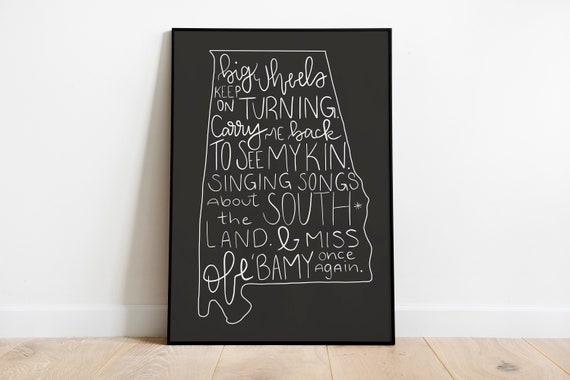 big wheels
KEEP
ON TURNING.
Carry ME back
TO SEE MY KIN.
SINGING SONGS
About
the SOUTH*
LAND. & MISS
ole 'BAMY once
again.